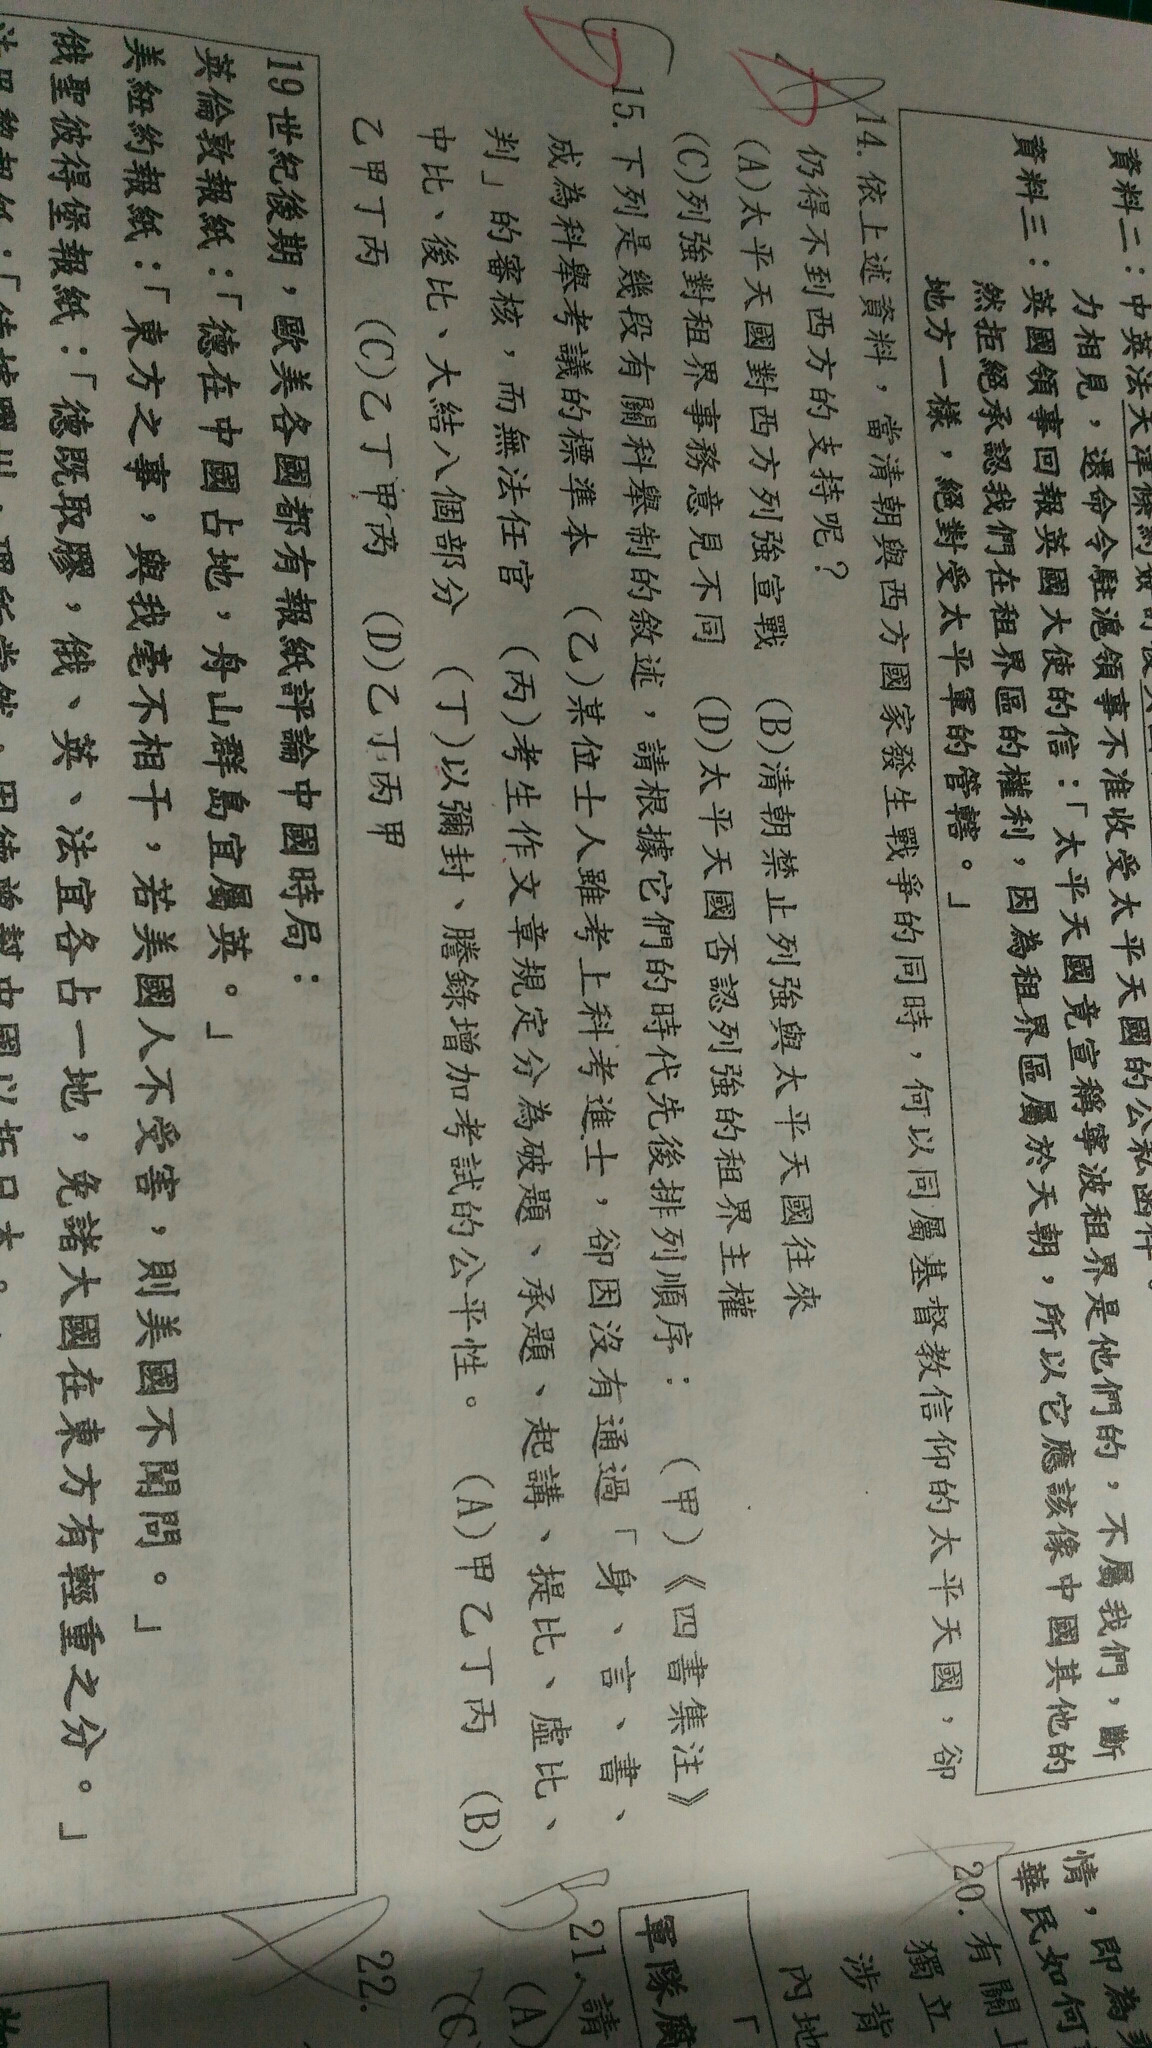 資料二：中英法天津條約
力相見，還命令駐滬領事不准收受太平天國的公私函件。
資料三：英國領事回報英國大使的信：「太平天國竟宣稱寧波租界是他們的，不屬我們，斷
然拒絕承認我們在租界區的權利，因為租界區屬於天朝，所以它應該像中國其他的
地方一樣，絕對受太平軍的管轄。」
14. 依上述資料，當清朝與西方國家發生戰爭的同時，何以同屬基督教信仰的太平天國，卻
仍得不到西方的支持呢？
(A)太平天國對西方列強宣戰 (B)清朝禁止列強與太平天國往來
(C)列強對租界事務意見不同 (D)太平天國否認列強的租界主權
15. 下列是幾段有關科舉制的敘述，請根據它們的時代先後排列順序： (甲)《四書集注》
成為科舉考議的標準本 (乙)某位士人雖考上科考進士，卻因沒有通過「身、言、書、
判」的審核，而無法任官 (丙)考生作文章規定分為破題、承題、起講、提比、虛比、
中比、後比、大結八個部分 (丁)以彌封、謄錄增加考試的公平性。 (A)甲乙丁丙 (B)
乙甲丁丙 (C)乙丁甲丙 (D)乙丁丙甲
19世紀後期，歐美各國都有報紙評論中國時局：
英倫敦報紙：「德在中國占地，舟山群島宜屬英。」
美紐約報紙：「東方之事，與我毫不相干，若美國人不受害，則美國不聞問。」
俄聖彼得堡報紙：「德既取膠，俄、英、法宜各占一地，免諸大國在東方有輕重之分。」
情，即為
華民如何
20. 有關上
獨立
涉背
內地
「
軍隊
21. 請
(A)
(C
22.